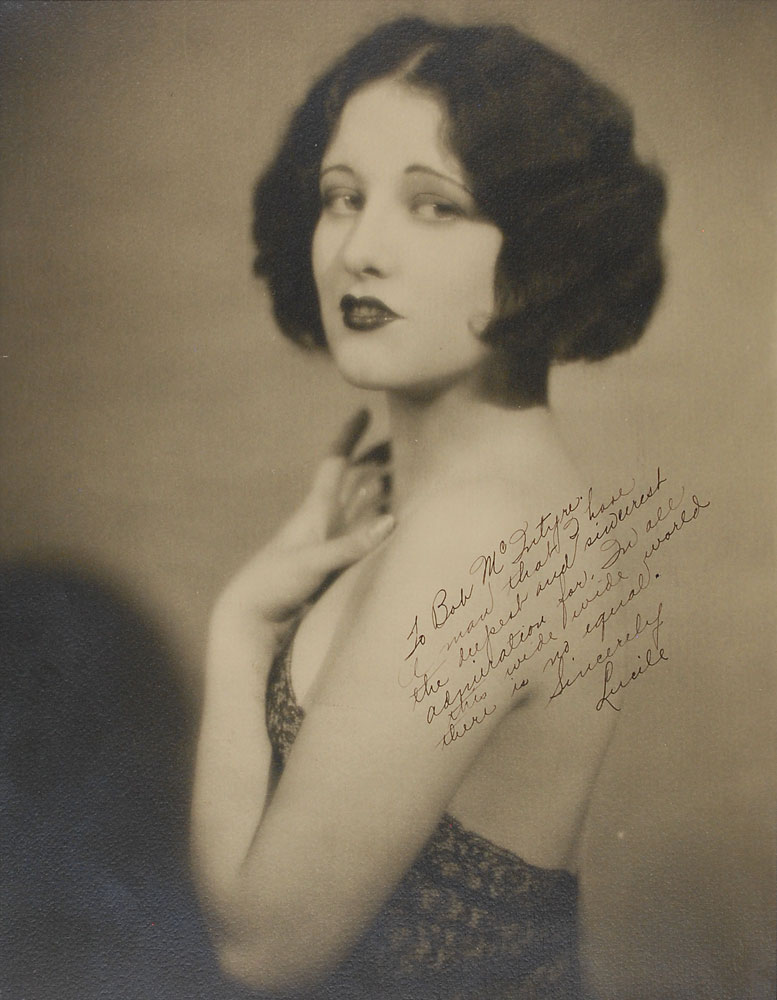 To Bob McIntyre.
A man that I have
the deepest and sincerest
admiration for. In all
this wide wide world
there is no equal.
Sincerely
Lucile